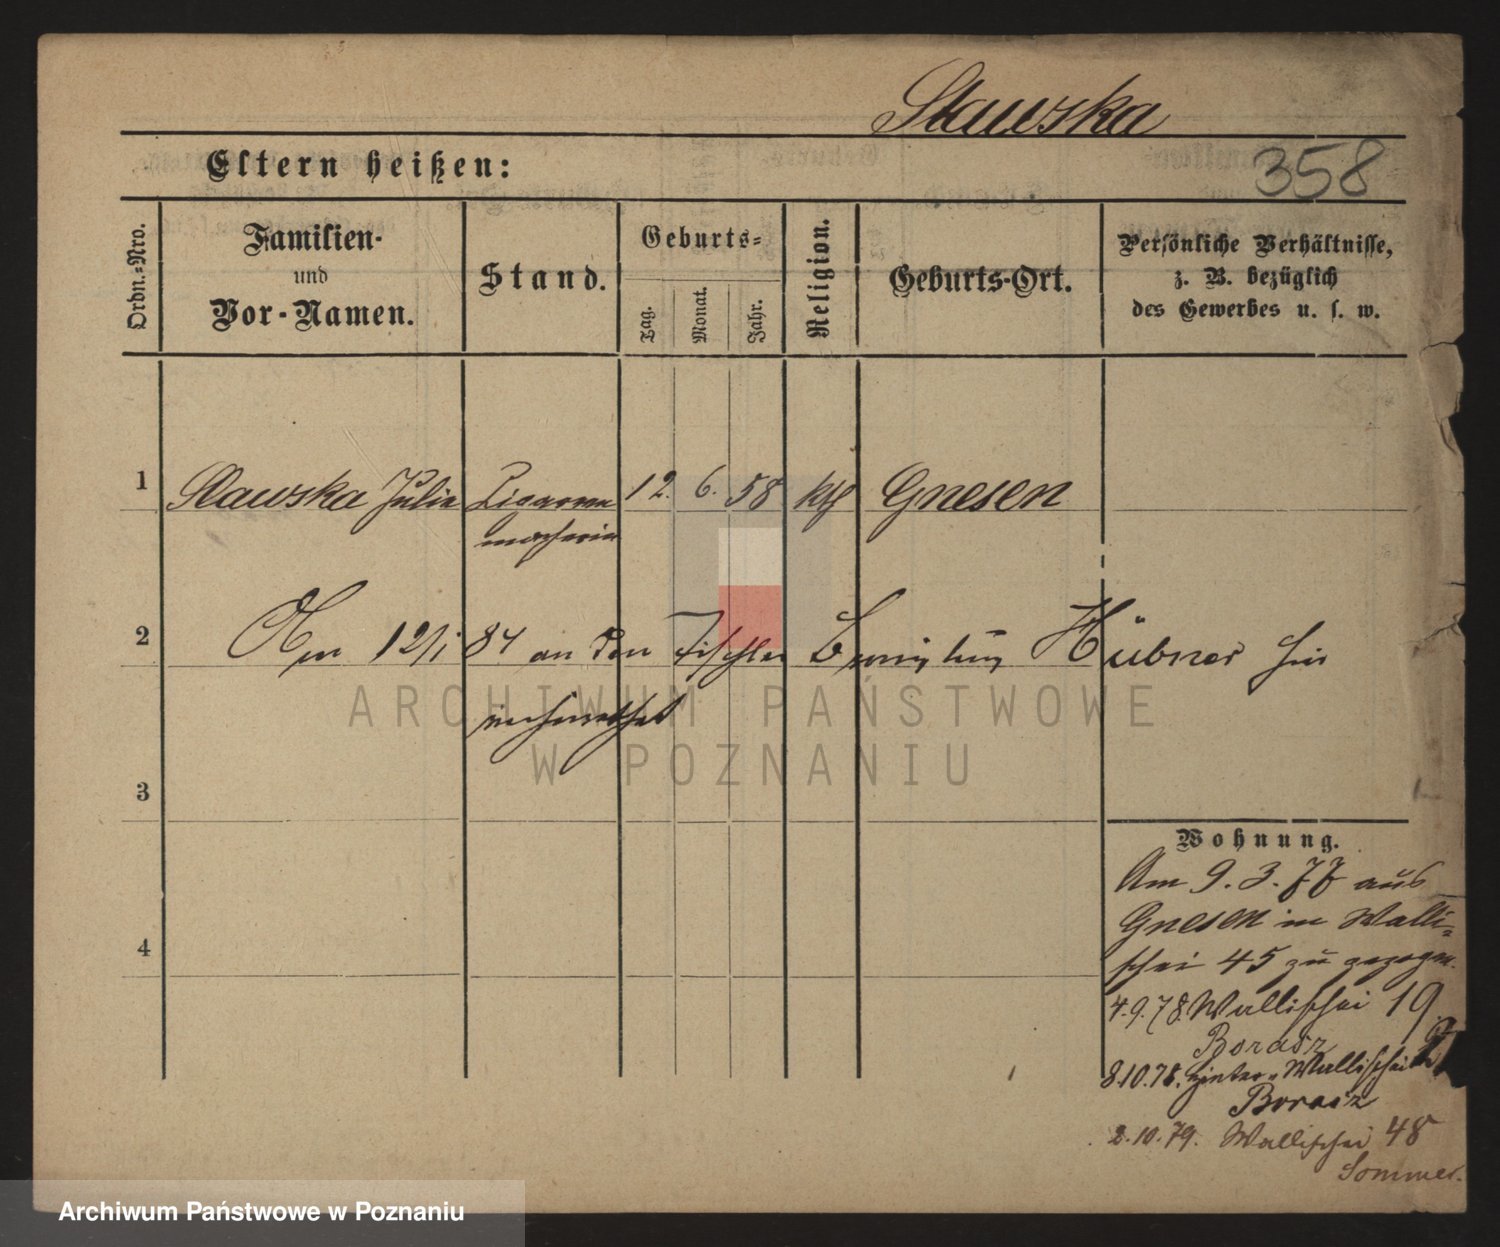 Slawska
Eltern heißen:
358
Ordn.-Nro.
Familien-
und
Vor-Namen.
Stand.
Geburts-
Tag.
Monat.
Jahr.
Religion.
Geburts-Ort.
Persönliche Verhältnisse,
z. B. bezüglich
des Gewerbes u. s. w.
1 Slawska Julia Cigarren 12. 6. 58 kth Gnesen
macherin
2 Am 12/1 84 an den Tischler Hübner hier
verheirathet
3
4
Wohnung.
Am 9. 3. 77 aus
Gnesen in Walli-
schei 45 zu gezogen.
4.9.78 Wallischei 19
Borasz
8.10.78. Hinter-Wallischei
Borasz
2.10.79. Wallischei 48
Sommer.
ARCHIWUM PAŃSTWOWE
W POZNANIU
Archiwum Państwowe w Poznaniu